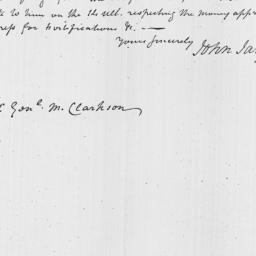 to him on the 14 ult. respecting the money appro
ress for Fortifications &c. —
Yours sincerely
John Jay
Genl. M. Clarkson